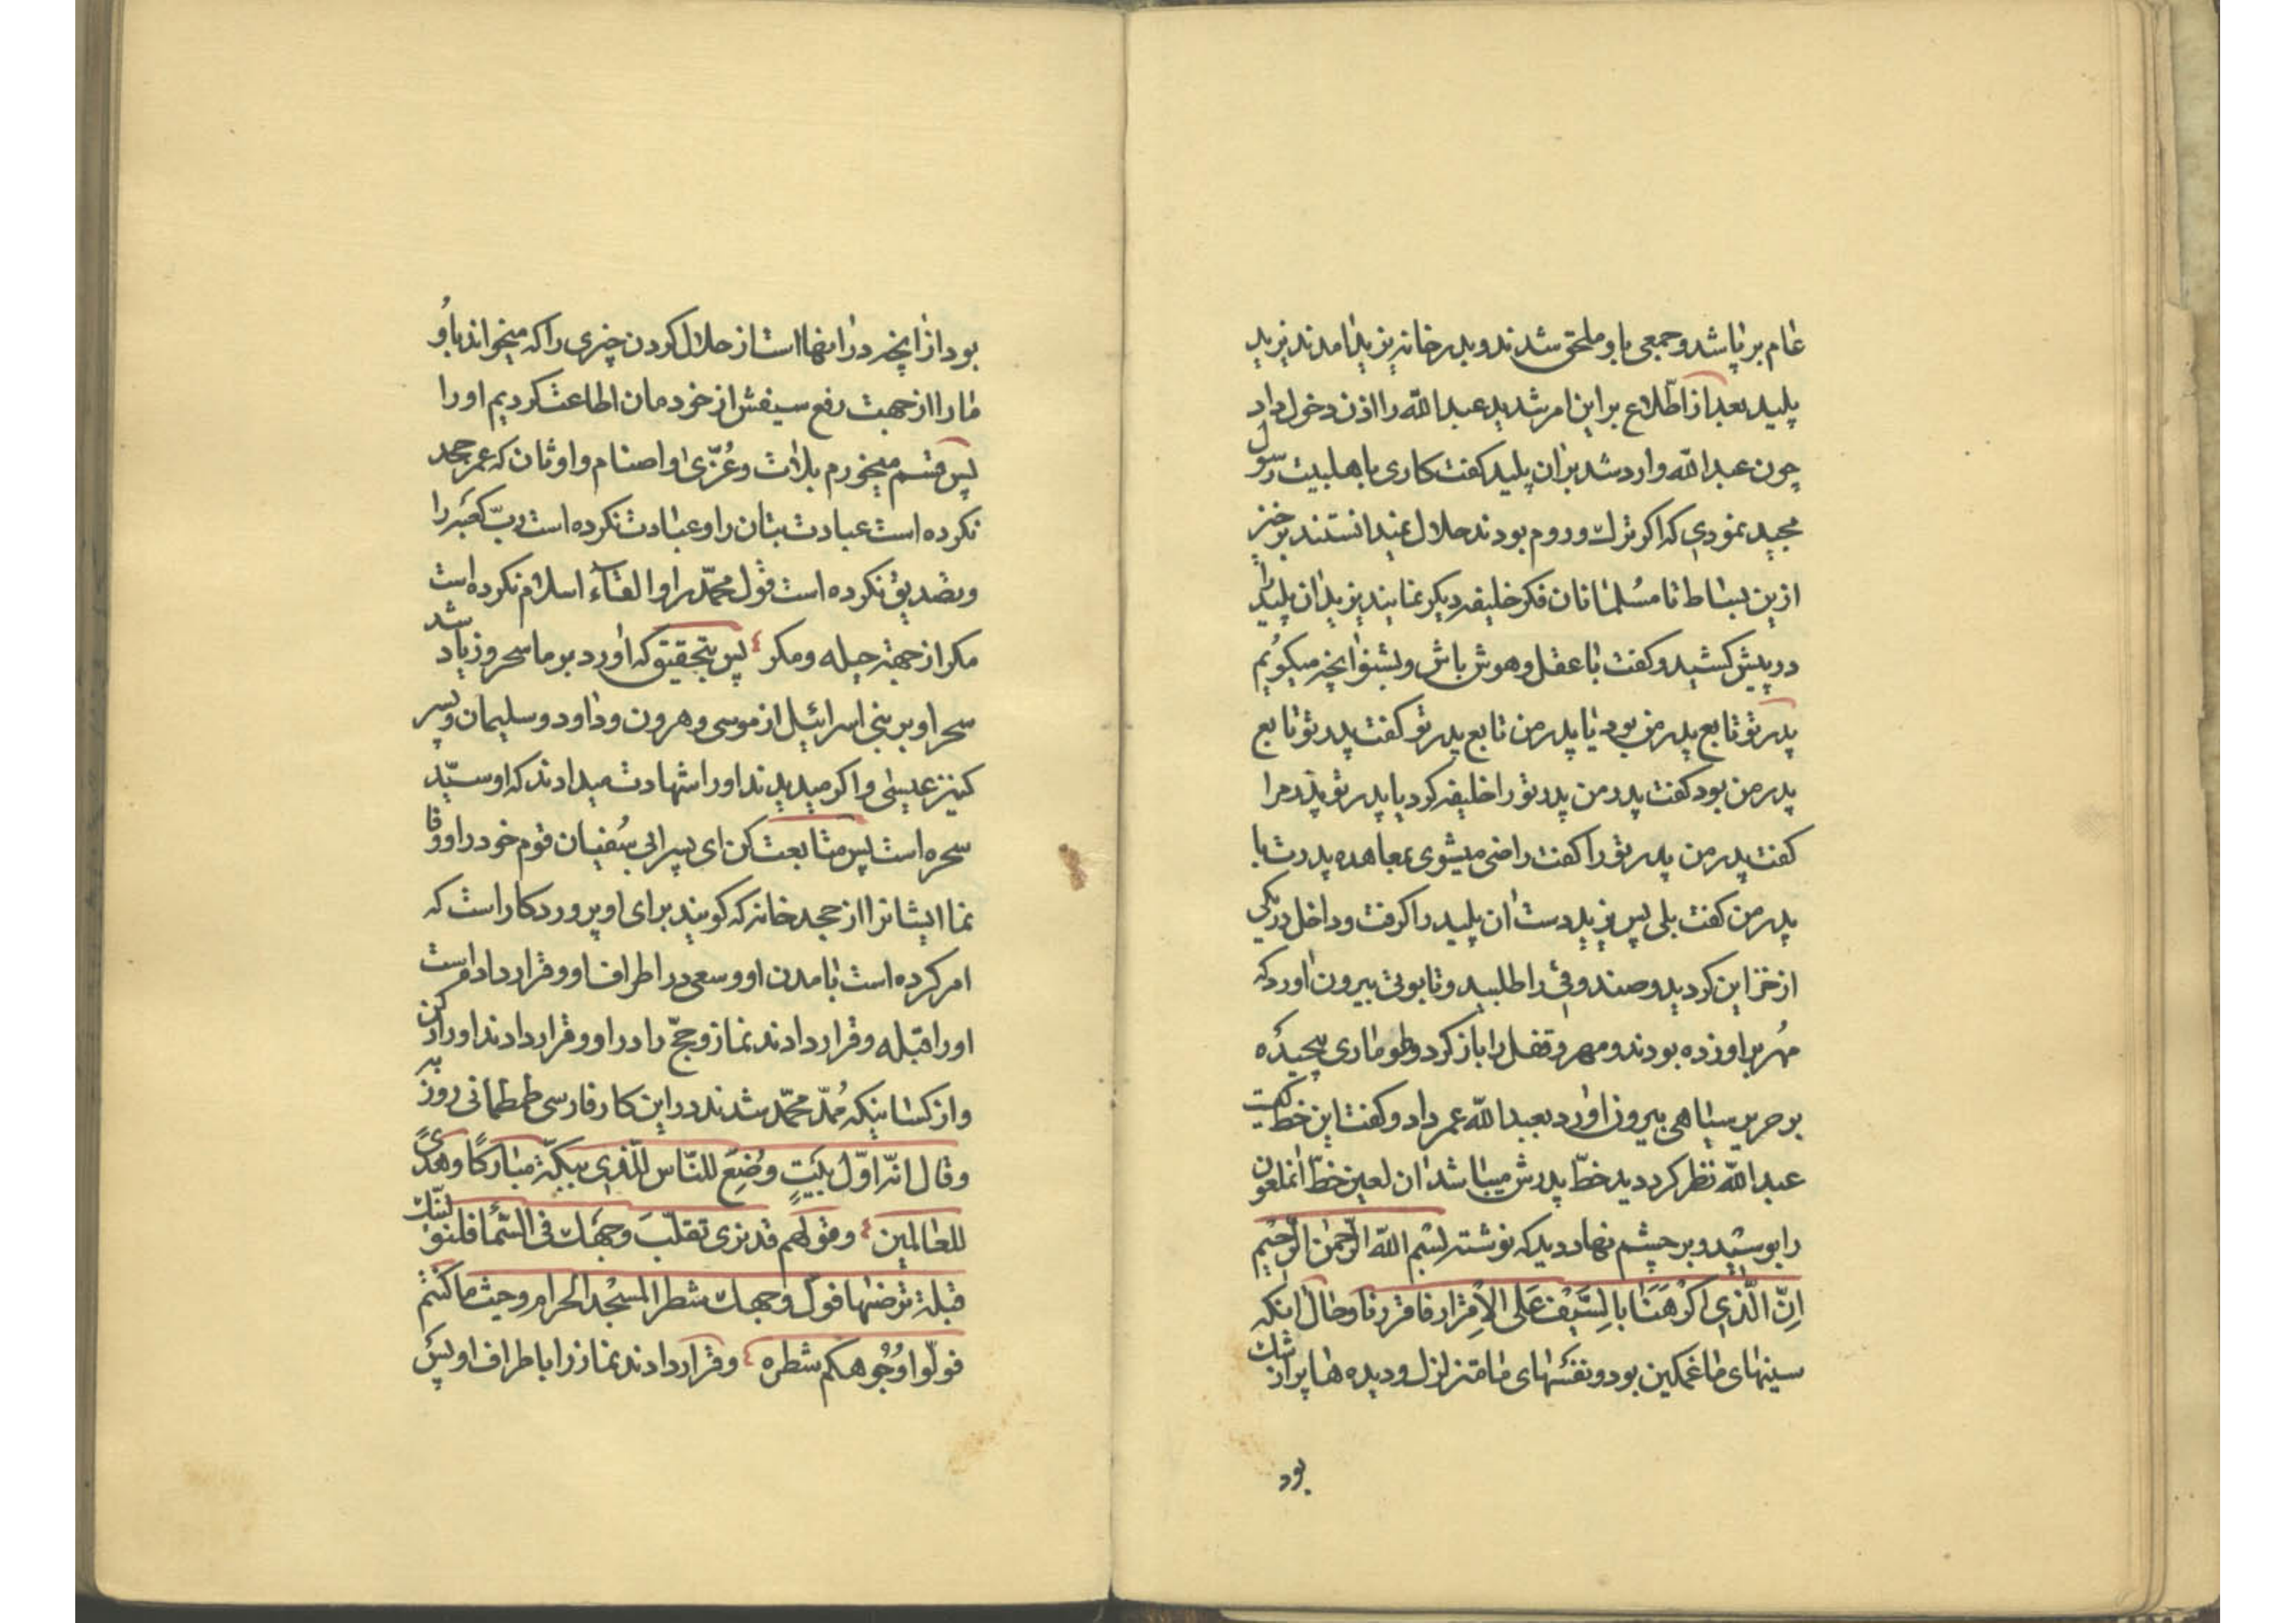 عام بر پا شد و جمعی باو ملحق شدند و بدر خانه یزید آمدند یزید
پلید بعد از اطّلاع بر این امر شدید عبد الله را اذن دخول داد
چون عبد الله وارد شد بر آن پلید کفت کاری با هلبیت رسول
مجید نمودی که اکر ترک و روم بودند حلال نمیدانستند برخیز
ازین بساط تا مسُلمانان فکر خلیفه دیکر نمایند یزید آن پلید را
در پیش کشید و کفت با عقل و هوش باش و بشنو آنچه میکویُم
پدر تو تابع پدر من بود یا پدر من تابع پدر تو کفت پدر تو تابع
پدر من بود کفت پدر من پدر تو را خلیفه کرد یا پدر تو پدر مرا
کفت پدر من پدر تو را کفت راضی میشوی بمعاهده پدرت با
پدر من کفت بلی پس یزید دست آن پلید را کرفت و داخل در یکی
از خزاین کردید و صندوقی را طلبید و تابوتی بیرون آورد که
مُهر بر او زده بودند و مهر و قفل را باز کرد و طوماری پیچیده
بر حریر سیاهی بیرون آورد بعبد الله عمر داد و کفت این خط کیست
عبد الله نظر کرد دید خطّ پدرش میباشد آن لعین خطّ آنملعون
را بوسید و بر چشم نهاد دید که نوشته بسْم الله الرّحمن الرّحیم
اِنّ الّذی اکرَهَنَا بالسَّیفْ عَلی الاِقرار فاقررنا و حال آنکه
سینهای ما غمکین بود و نفَسْهای ما متزلزل و دیده ها پر از شک
بود
بود از آنچه در اینها است از حلال کردن چیزی را که میخواند باو
ما را از جهت رفع سیفش از خودمان اطاعت کردیم او را
پس قسم میخورم بلات و عُزّی و اصنام و اوثان که عمر جحد
نکرده است عبادت بتان را و عبادت نکرده است ربّ کعبَه را
و تصدیق نکرده است قول محمّد را و القآء اسلام نکرده است
مکر از جهة حیله و مکر پس بتحقیق که آورد بر ما سحر و زیاد شد
سحر او بر بنی اسرائیل از موسی و هرون و داود و سلیمان و پسر
کنیز عیسی و اکر میدیدند او را شهادت میدادند که او سیّد
سحره است پس متابعت کن ای پسر ابی سُفیان قوم خود را و وفا
نما ایشانرا از جحد خانه که کویند برای او پروردکار است که
امر کرده است بآمدن او و سعی در اطراف او و قرار داد است
او را قبله و قرار دادند نماز و حجّ را در او و قرار دادند او را رکن
و از کسانیکه مُمدّ محمّد شدند در این کار فارسی طمطمانی روز به
و قال انّ اوّل بَیتٍ وضِعَ للنّاس للّذی ببکّة مبارکًا و هدًی
للعالمین و قولهم قد نری تقلّبَ وجهَک فی السّمآ فلنولّینّک
قبلة ترضیها فولّ وجهک شطر المسْجد الحرام و حیث ما کنتُم
فولّوا وُجُوهکم شطره و قرار دادند نماز را باطراف او پس